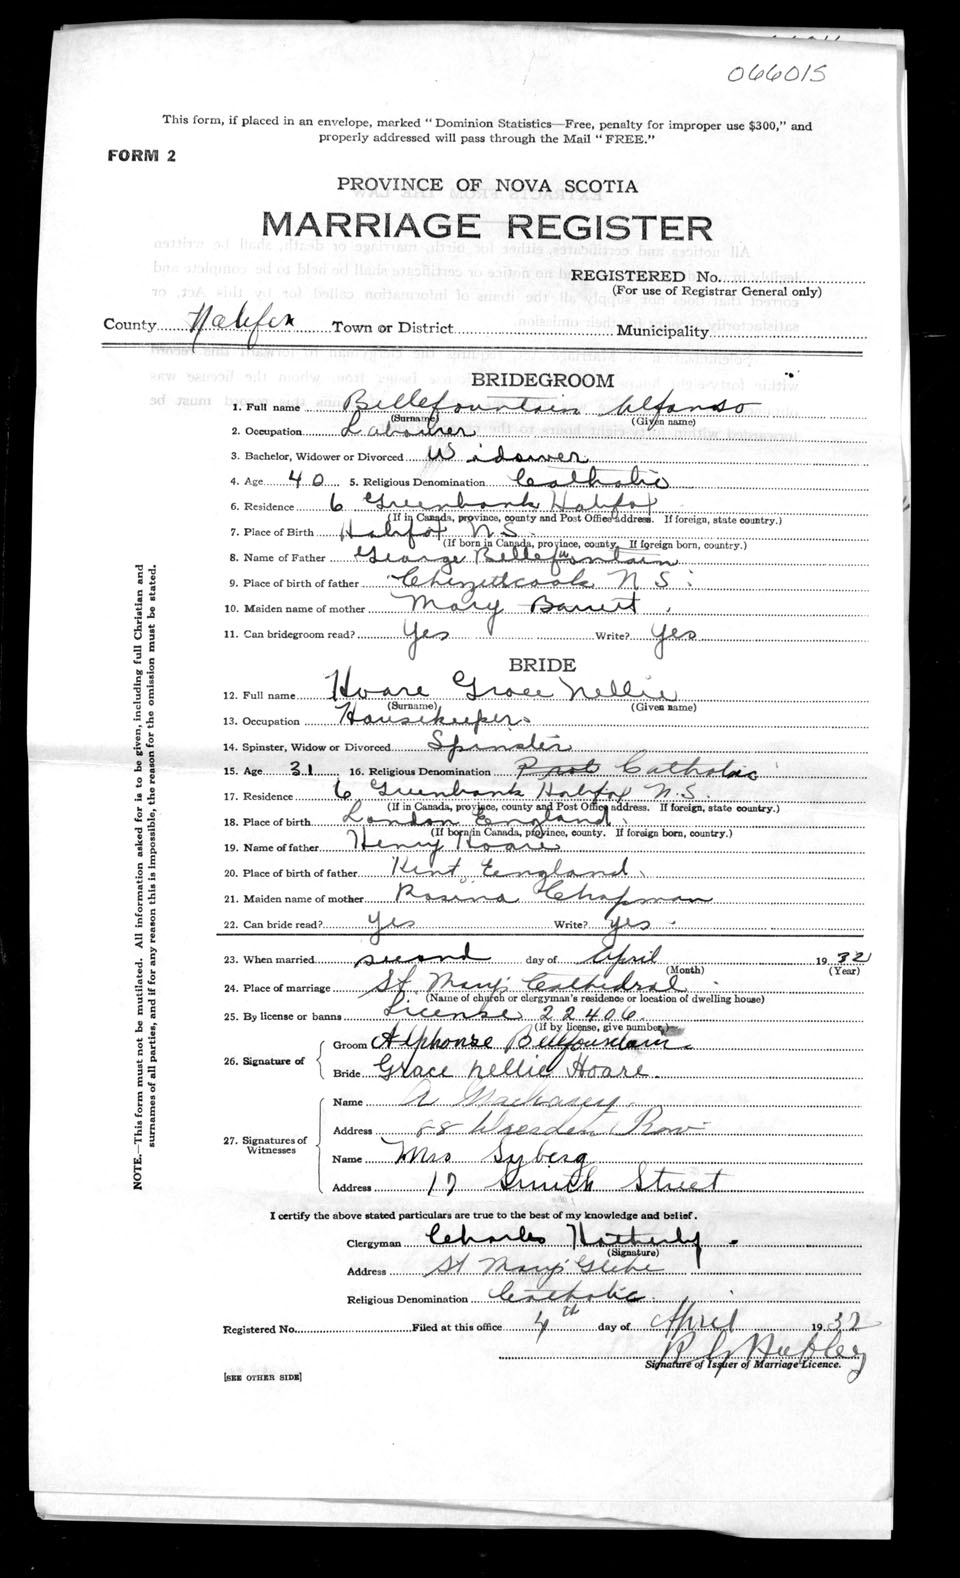 066015
This form, if placed in an envelope, marked "Dominion Statistics—Free, penalty for improper use $300," and
properly addressed will pass through the Mail "FREE."
FORM 2
PROVINCE OF NOVA SCOTIA
MARRIAGE REGISTER
REGISTERED No.
(For use of Registrar General only)
County Halifax Town or District Municipality
BRIDEGROOM
1. Full name Bellefountain Alfonso
(Surname) (Given name)
2. Occupation Labourer
3. Bachelor, Widower or Divorced Widower
4. Age 40 5. Religious Denomination Catholic
6. Residence 6 Greenbank Halifax
(If in Canada, province, county and Post Office address. If foreign, state country.)
7. Place of Birth Halifax N.S.
(If born in Canada, province, county. If foreign born, country.)
8. Name of Father George Bellefountain
9. Place of birth of father Chezzetcook N S.
10. Maiden name of mother Mary Barrett
11. Can bridegroom read? Yes Write? Yes
BRIDE
12. Full name Hoare Grace Nellie
(Surname) (Given name)
13. Occupation Housekeeper.
14. Spinster, Widow or Divorced Spinster
15. Age 31 16. Religious Denomination Catholic
17. Residence 6 Greenbank Halifax N.S.
(If in Canada, province, county and Post Office address. If foreign, state country.)
18. Place of birth London England.
(If born in Canada, province, county. If foreign born, country.)
19. Name of father Henry Hoare
20. Place of birth of father Kent England.
21. Maiden name of mother Rosina Chapman
22. Can bride read? yes Write? yes.
23. When married second day of April 1932
(Month) (Year)
24. Place of marriage St. Mary's Cathedral
(Name of church or clergyman's residence or location of dwelling house)
25. By license or banns License 22406.
(If by license, give number)
26. Signature of
Groom Alphonse Bellfountain.
Bride Grace Nellie Hoare.
27. Signatures of
Witnesses
Name A
Address 88 Dresden Row
Name Mrs Syberg
Address 17 Smith Street
I certify the above stated particulars are true to the best of my knowledge and belief.
Clergyman Charles
(Signature)
Address St Mary's Glebe
Religious Denomination Catholic
Registered No. Filed at this office 4th day of April 1932
Hubley
Signature of Issuer of Marriage Licence.
[SEE OTHER SIDE]
NOTE.—This form must not be mutilated. All information asked for is to be given, including full Christian and
surnames of all parties, and if for any reason this is impossible, the reason for the omission must be stated.